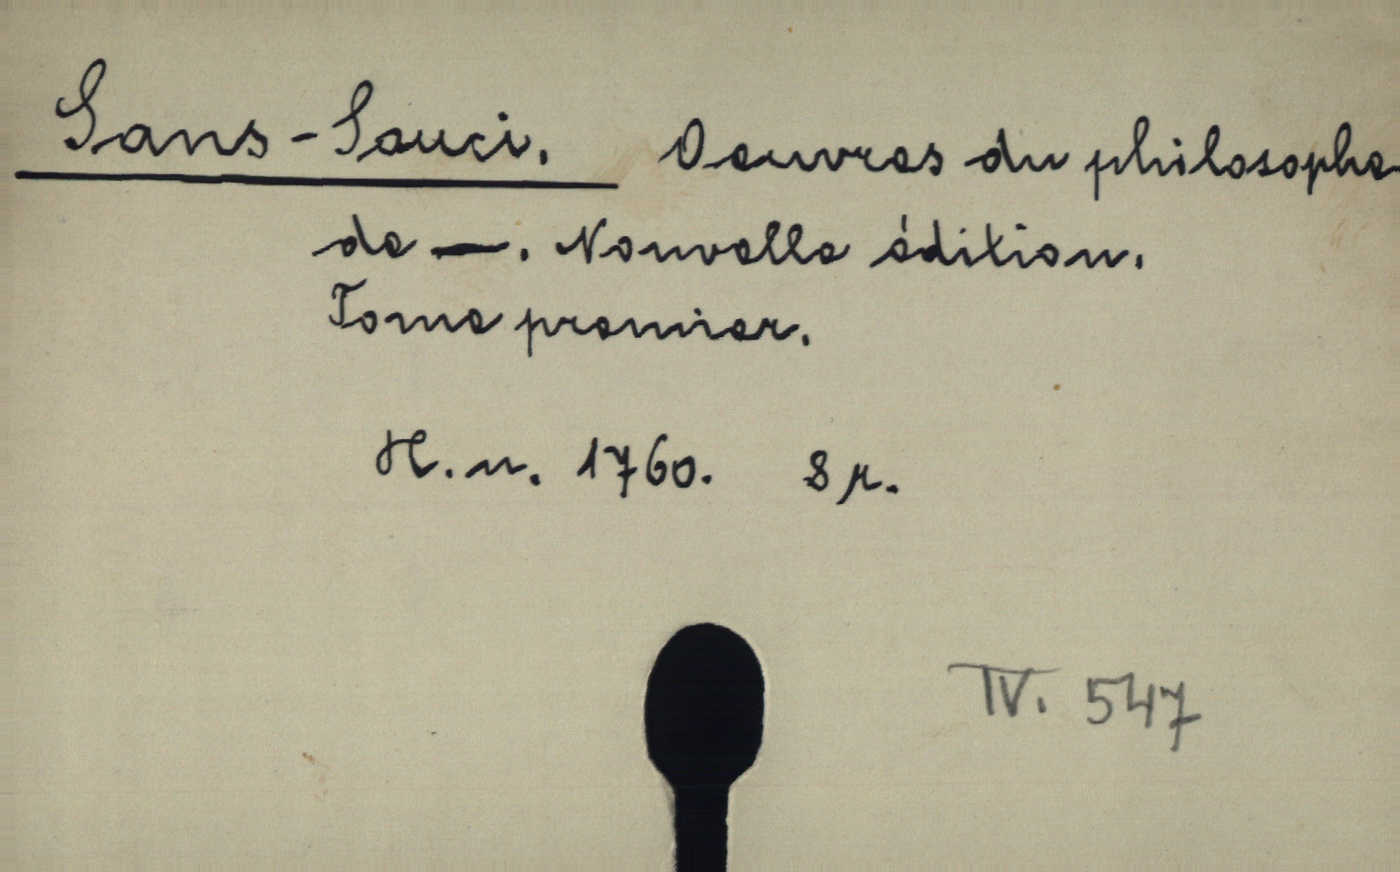 Sans-Souci. Oeuvres du philosophe
de —. Nouvelle édition.
Tome premier.
H. n. 1760. 8 r.
IV. 547